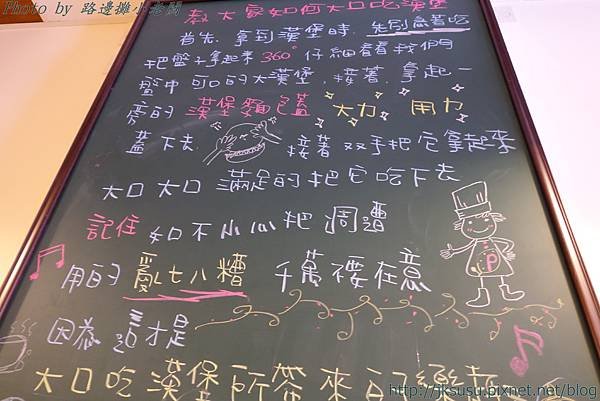 Photo by 路邊攤小老闆
教大家如何大口吃漢堡
首先,拿到漢堡時,先別急著吃
把盤子拿起來360°仔細看看我們
盤中可口的大漢堡,接著,拿起一
旁的漢堡麵包蓋 大力 用力
蓋下去 接著 双手把它拿起來
大口大口 滿足的把它吃下去
記住 如不小心把 周遭
用的亂七八糟 千萬 在意
因為 這才是
大口吃漢堡所帶來的樂趣
P
http://jksusu.pixnet.net/blog